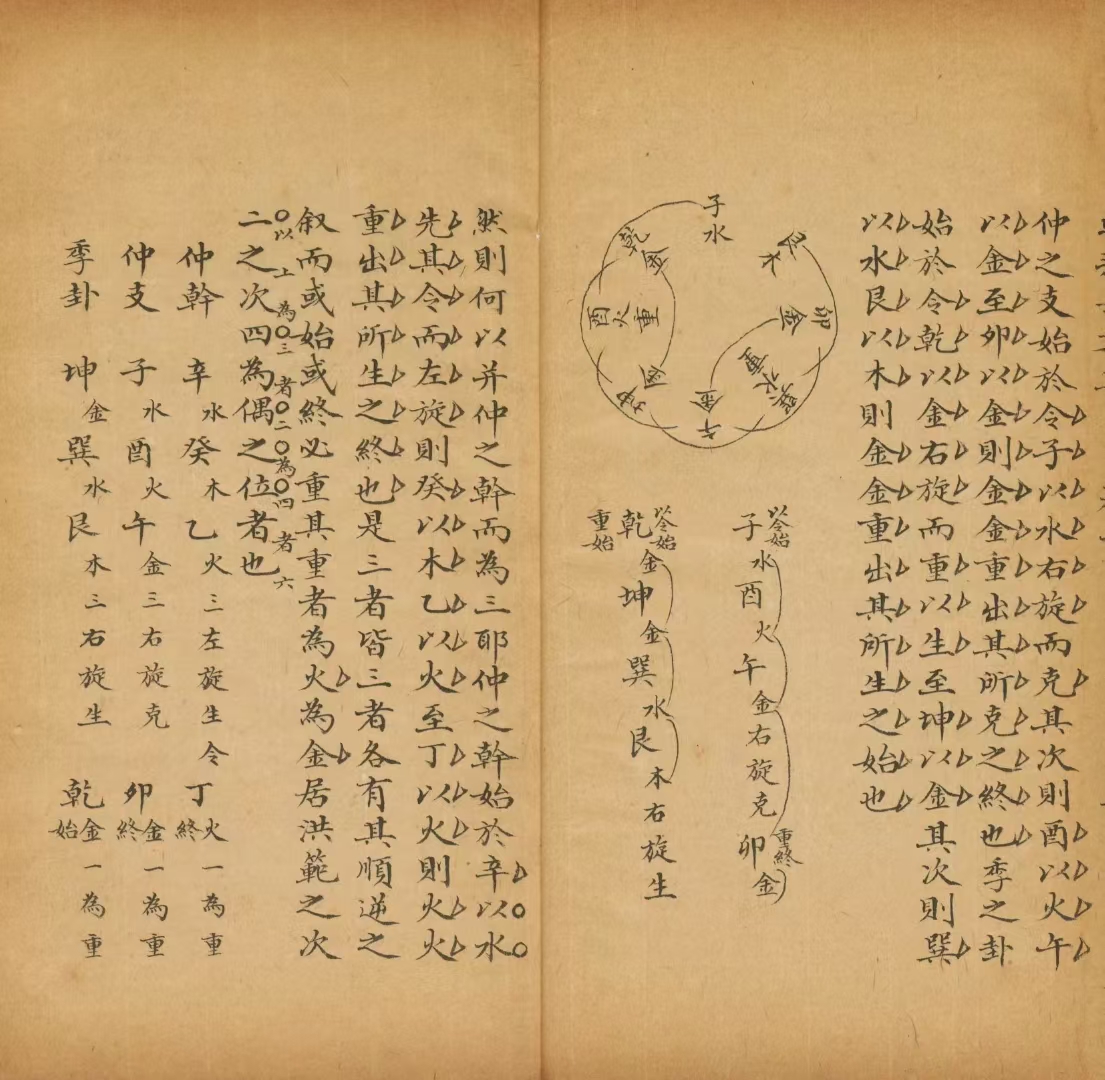 仲之支始於令子以水右旋而克其次則酉以火午
以金至卯以金則金金重出其所克之終也季之卦
始於令乾以金右旋而重以生至坤以金其次則巽
以水艮以木則金金重出其所生之始也
子水
乾金
酉火重
坤金
午金
巽水重
卯金
艮木
以令始
子水酉火午金右旋克卯金
重終
以令始
乾金坤金巽水艮木右旋生
重始
然則何以并仲之幹而為三耶仲之幹始於辛以水
先其令而左旋則癸以木乙以火至丁以火則火火
重出其所生之終也是三者皆三者各有其順逆之
叙而或始或終必重其重者為火為金居洪範之次
以上為三者二為四者六
二之次四為偶之位者也
仲幹 辛水癸木乙火三左旋生令 丁火一為重終
仲支 子水酉火午金三右旋克 卯金一為重終
季卦 坤金巽水艮木三右旋生 乾金一為重始